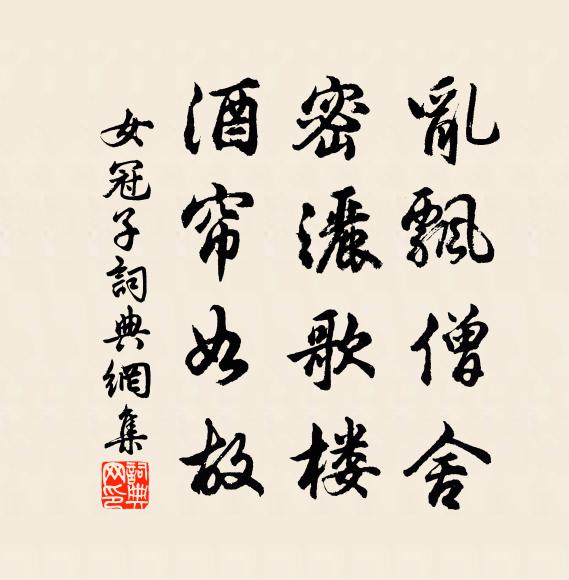 亂飄僧舍
密灑歌楼
酒帘如故
女冠子詞典網集
詞典网印